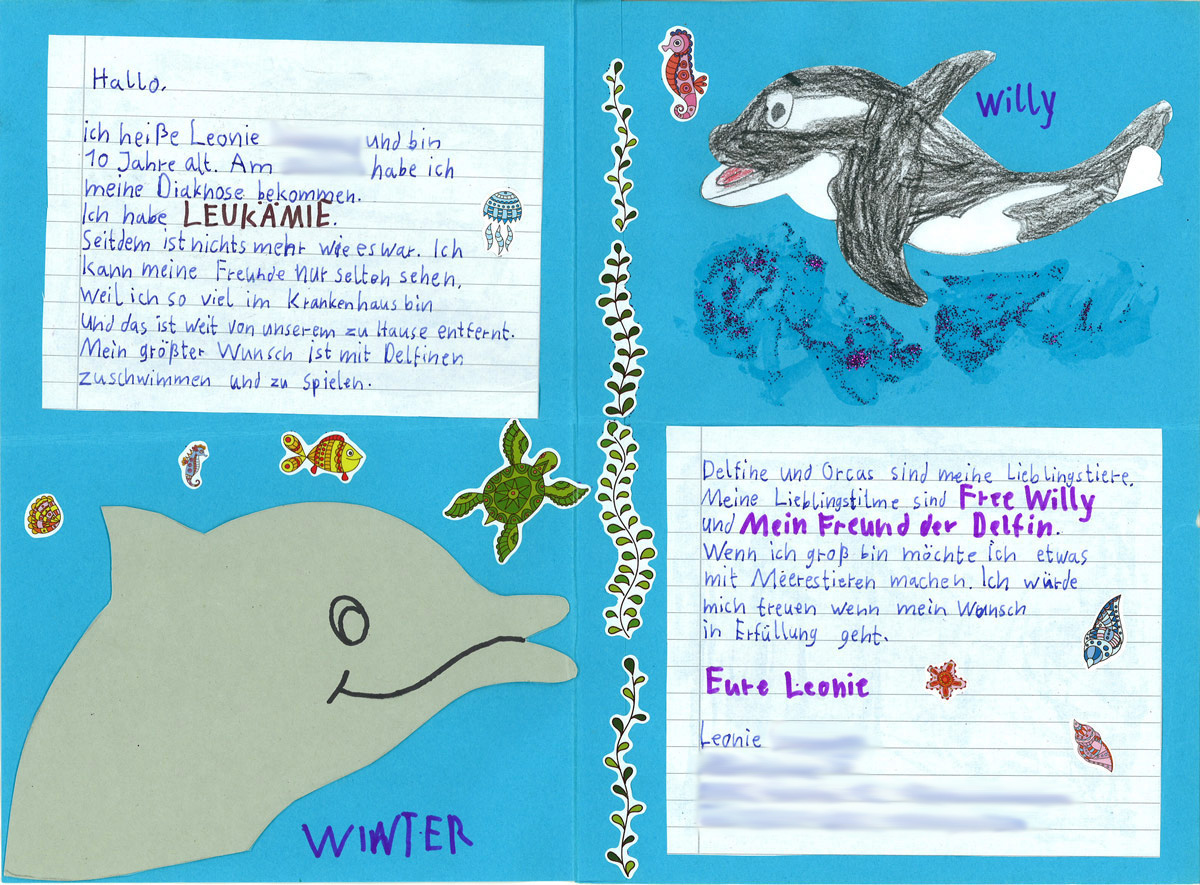 Hallo,
ich heiße Leonie und bin
10 Jahre alt. Am habe ich
meine Diaknose bekommen.
Ich habe LEUKÄMIE.
Seitdem ist nichts mehr wie es war. Ich
kann meine Freunde nur selten sehen,
weil ich so viel im Krankenhaus bin
und das ist weit von unserem zu Hause entfernt.
Mein größter Wunsch ist mit Delfinen
zuschwimmen und zu spielen.
Willy
WINTER
Delfine und Orcas sind meine Lieblingstiere.
Meine Lieblingsfilme sind Free Willy
und Mein Freund der Delfin.
Wenn ich groß bin möchte ich etwas
mit Meerestieren machen. Ich würde
mich freuen wenn mein Wunsch
in Erfüllung geht.
Eure Leonie
Leonie